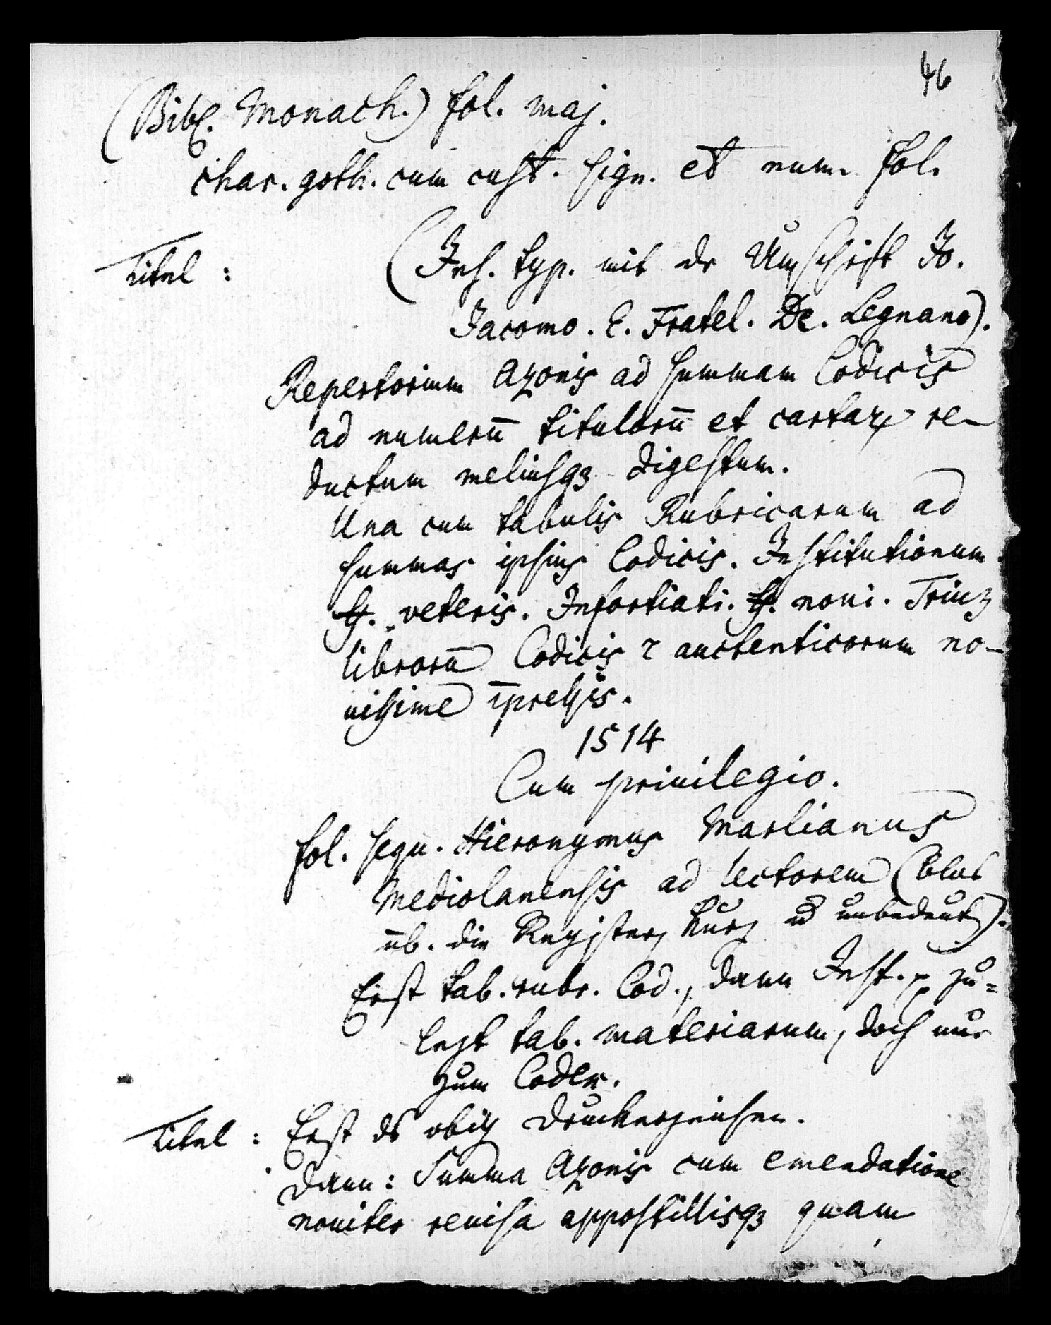 46
(Bibl. Monach.) fol. maj.
char. goth. cum cust. sign. et num. fol.
Titel : (Ins. typ. mit dr Umschrift Jo.
Jacomo. E. Fratel. De. Legnano).
Repertorium Azonis ad summam Codicis
ad numerū titulorū et cartaꝝ re-
ductum meliusqꝫ digestum.
Una cum tabulis Rubricarum ad
summas ipsius Codicis. Institutionum
ff. veteris. Infortiati. ff. noui. Triuꝫ
librorū Codicis ⁊ auctenticorum no-
uissime īpressis.
1514
Cum priuilegio.
fol. sequ. Hieronymus Marlianus
Mediolanensis ad lectorem (blos
üb. die Register, kurz u unbedeut).
Erst tab. rubr. Cod., dann Inst. zu-
letzt tab. materiarum, doch nur
zum Codex.
Titel : Erst ds obig Druckerzeichen.
Dann : Summa Azonis cum emendatione
nouiter reuisa appostillisqꝫ quam